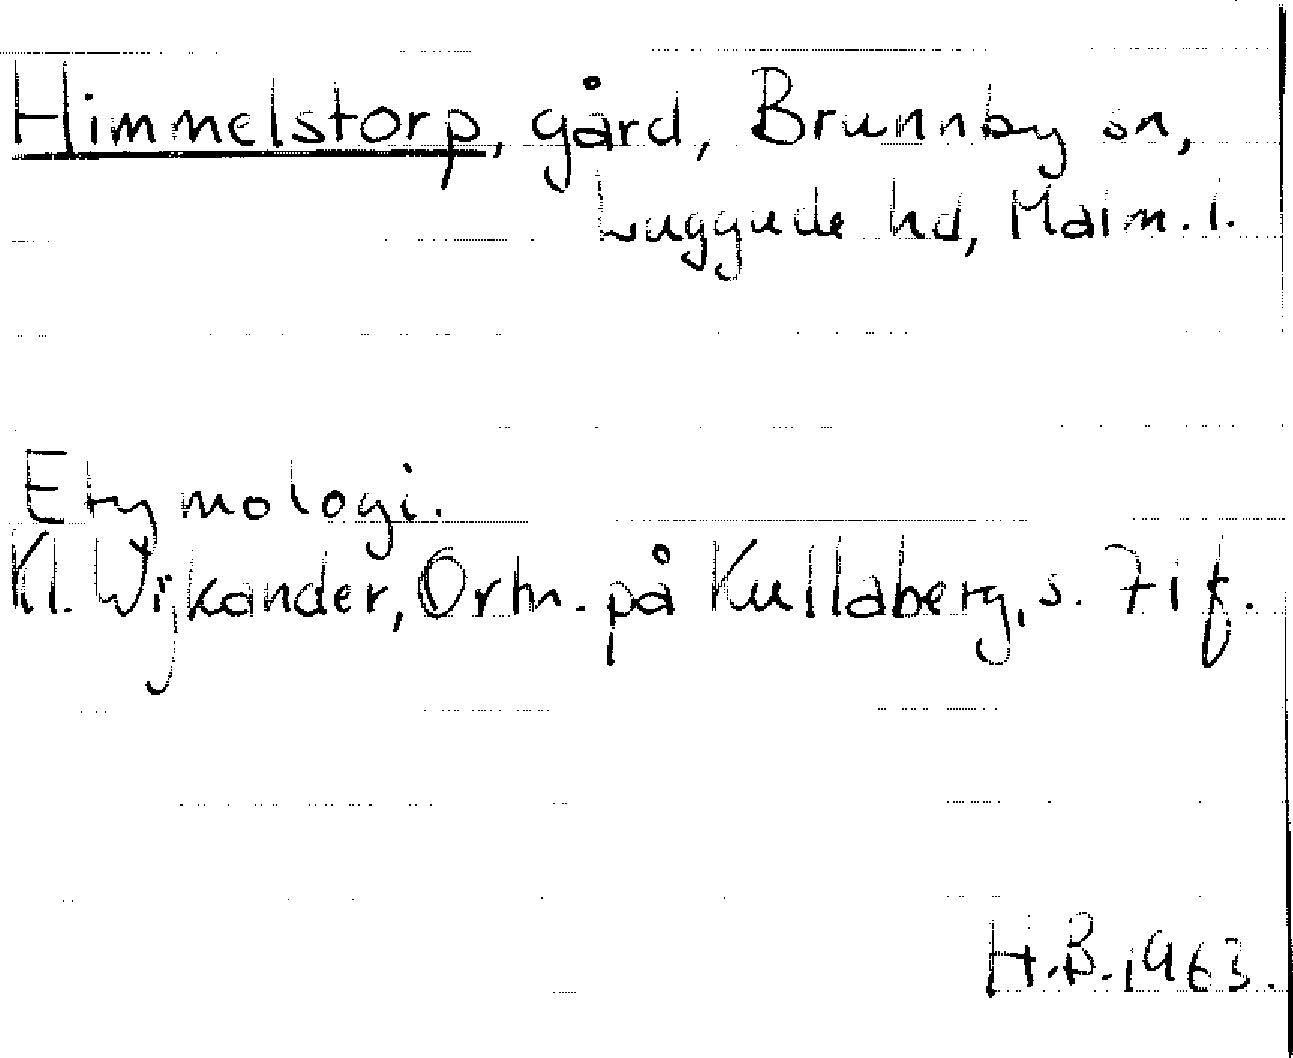 Himmelstorp, gård, Brunnby sn,
Luggude hd, Malm. l.
Etymologi.
Kl. Wijkander, Ortn. på Kullaberg, s. 71 f.
H.B. 1963.